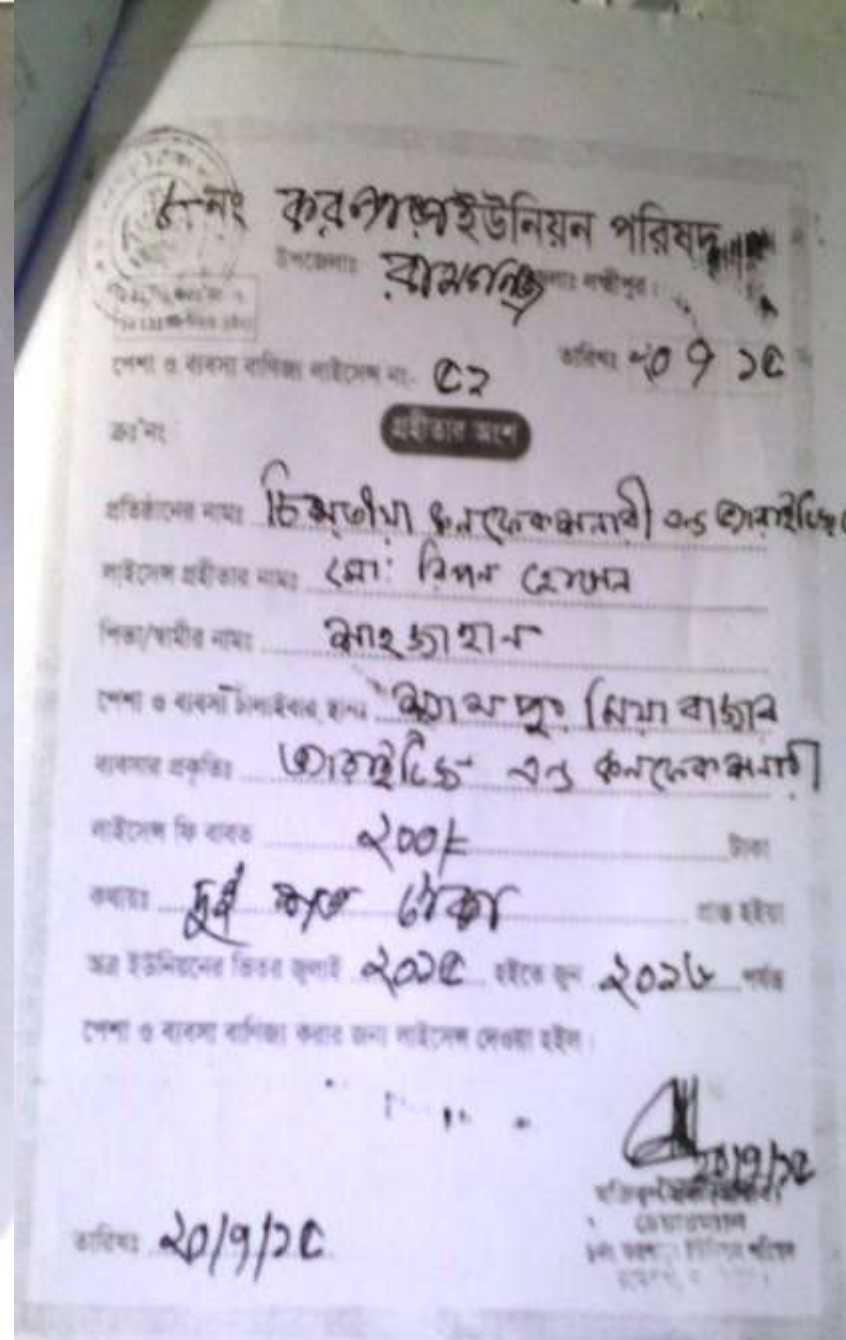 ৮নং করপাড়া ইউনিয়ন পরিষদ
উপজেলাঃ রামগঞ্জ জেলাঃ লক্ষ্মীপুর।
পেশা ও ব্যবসা বাণিজ্য লাইসেন্স নং- ৫২ তারিখঃ ২০ ৭ ১৫
ক্রঃ নং
গ্রহীতার অংশ
প্রতিষ্ঠানের নামঃ কনফেকশনারী এন্ড ভ্যারাইটিজ
লাইসেন্স গ্রহীতার নামঃ মো: রিপন হোসেন
পিতা/স্বামীর নামঃ শাহজাহান
পেশা ও ব্যবসা চালাইবার স্থানঃ শ্যামপুর মিয়া বাজার
ব্যবসার প্রকৃতিঃ ভ্যারাইটিজ এন্ড কনফেকশনারী
লাইসেন্স ফি বাবত ২০০/= টাকা
কথায়ঃ দুই শত টাকা প্রাপ্ত হইয়া
অত্র ইউনিয়নের ভিতর জুলাই ২০১৫ হইতে জুন ২০১৬ পর্যন্ত
পেশা ও ব্যবসা বাণিজ্য করার জন্য লাইসেন্স দেওয়া হইল।
২০/৭/১৫
চেয়ারম্যান
তারিখঃ ২০/৭/১৫